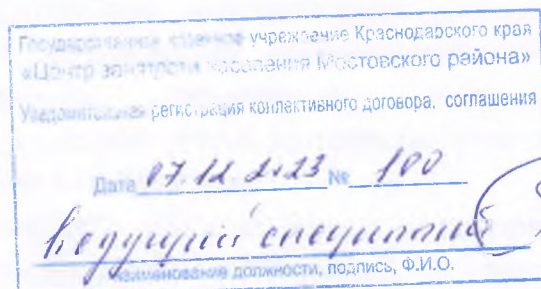 Государственное казенное учреждение Краснодарского края
«Центр занятости населения Мостовского района»
Уведомительная регистрация коллективного договора, соглашения
Дата 07.12.2023 № 100
Ведущий специалист
наименование должности, подпись, Ф.И.О.